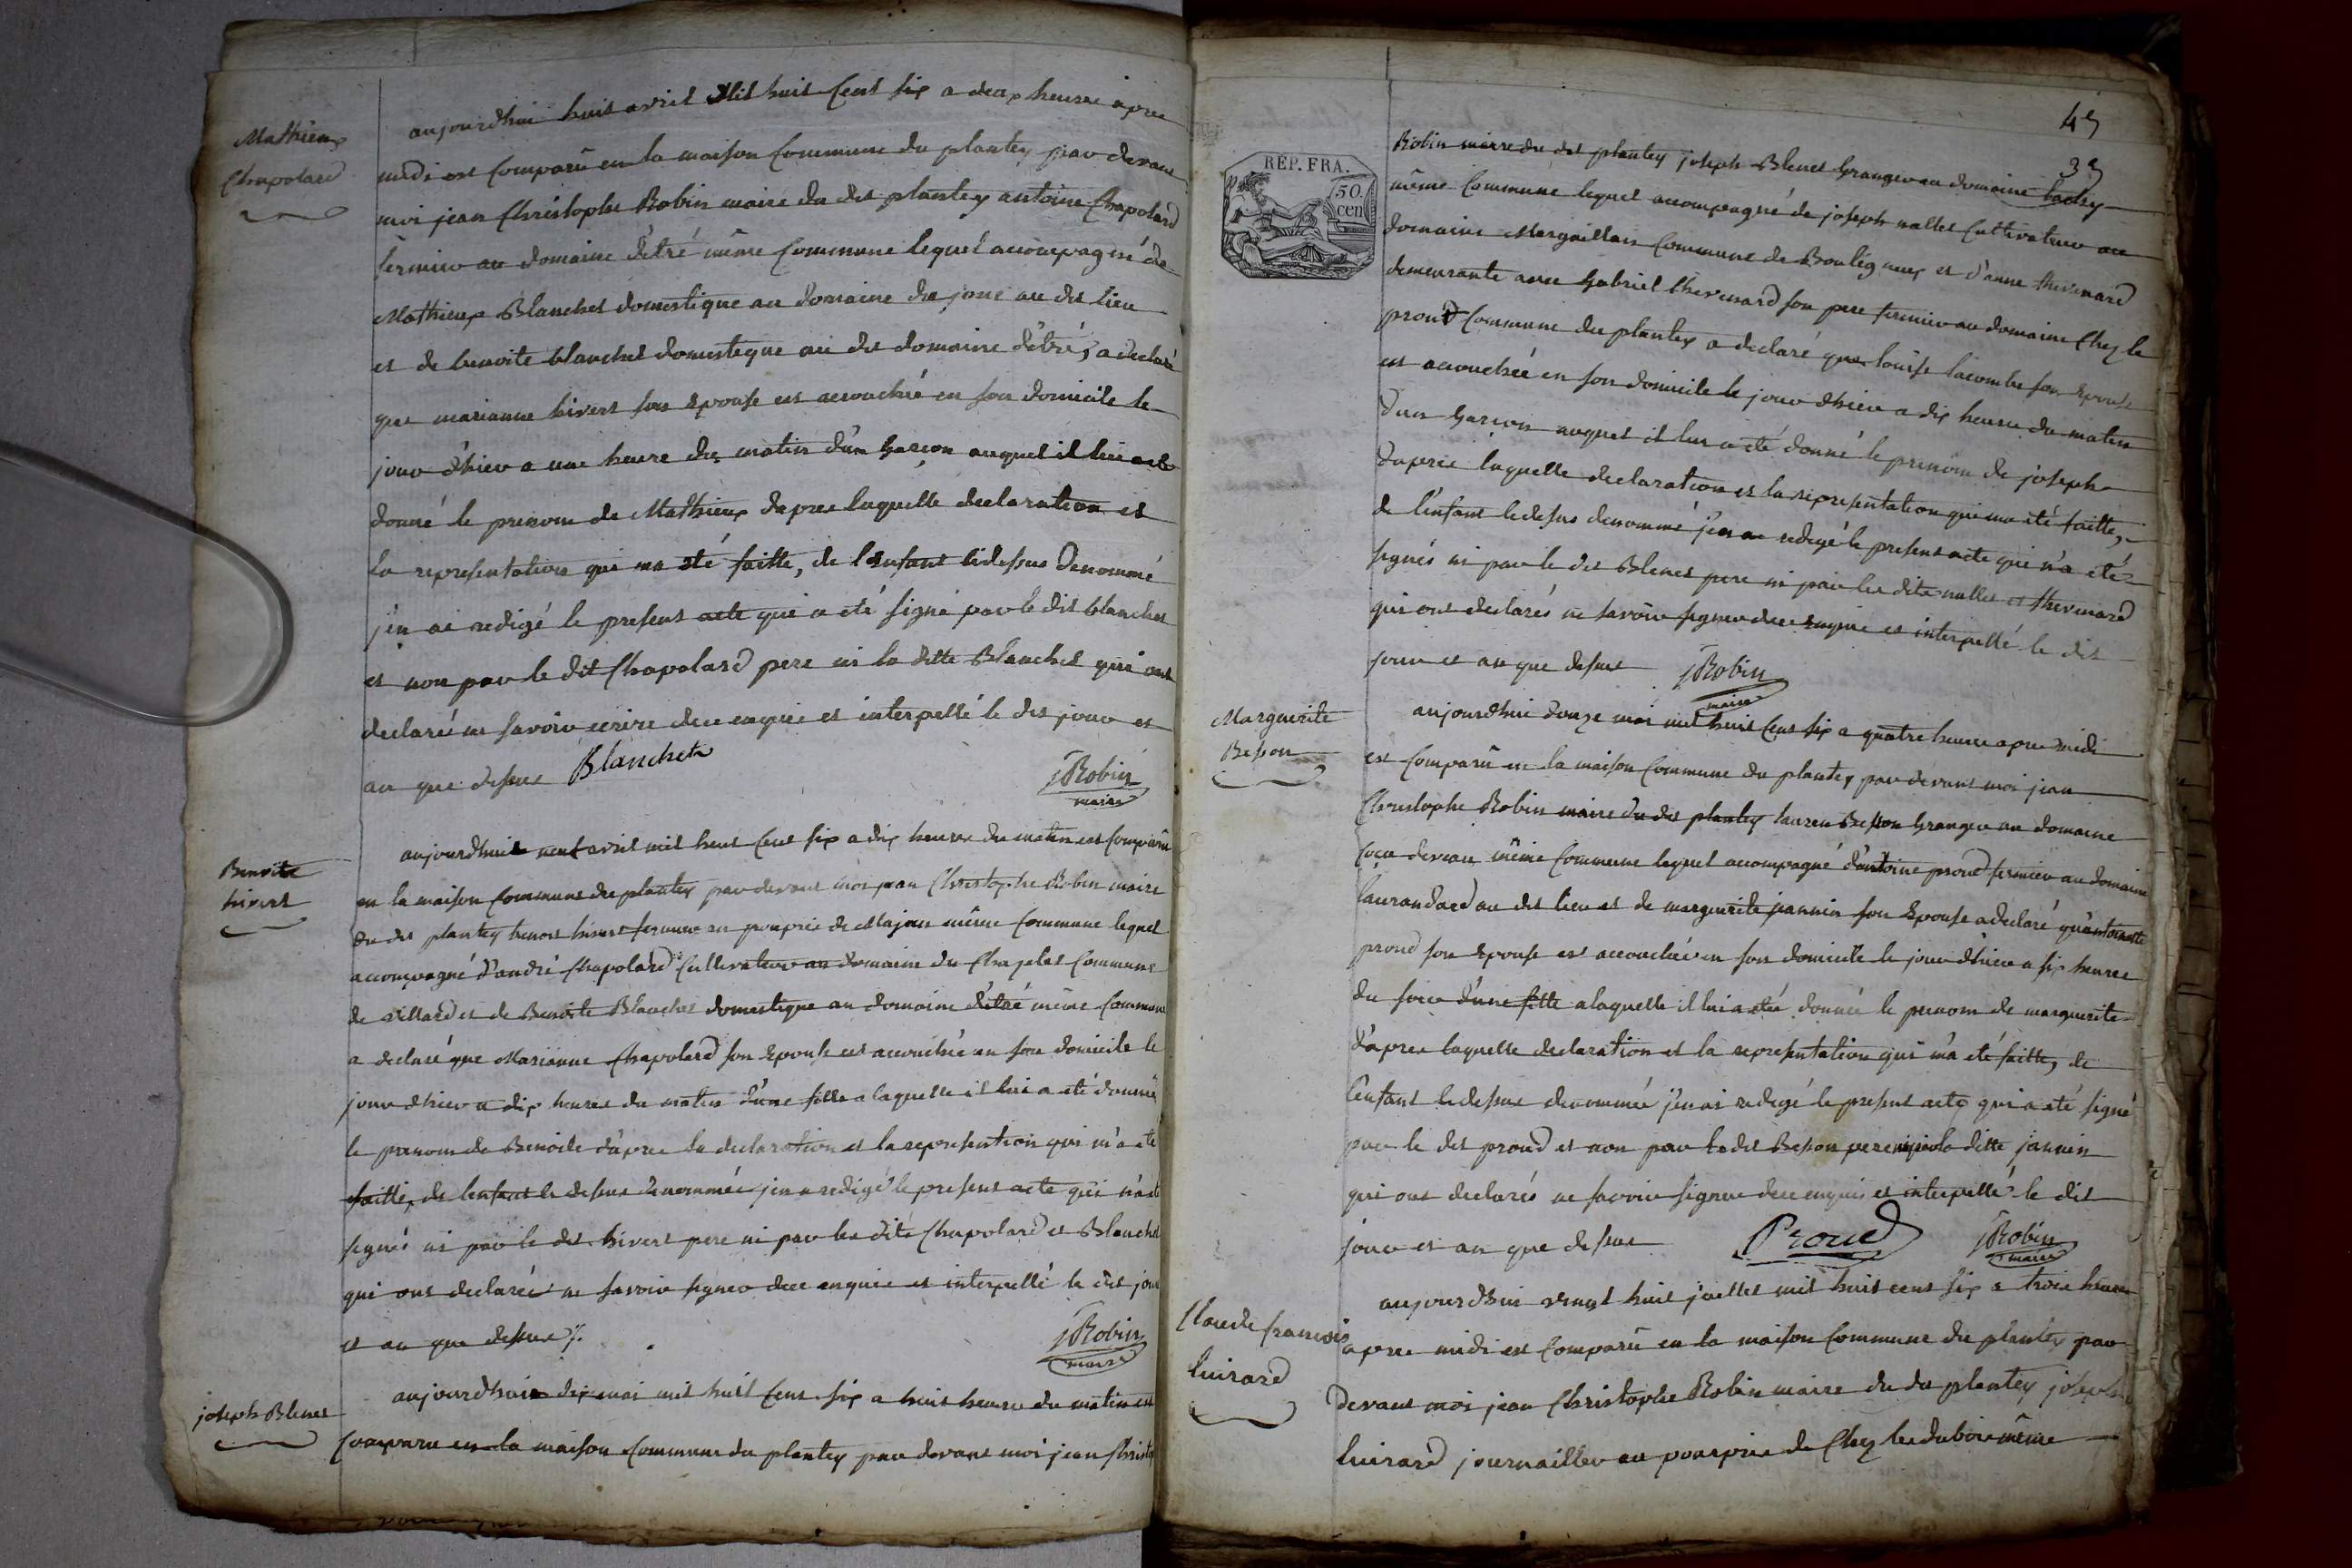 Mathieux
Chapolard
aujourdhui huit avril Mil huit Cent six a deux heures apres
midi est Comparû en la maison Commune du plantey par devant
moi jean Christophe Robin maire du dit plantey antoine Chapolard
fermier au domaine détré même Commune lequel accompagné de
Mathieux Blanchet domestique au domaine du jonc au dit lieu
et de benoite blanchet domestique au dit domaine détré, a declaré
que marianne hivert son Epouse est accouchée en son domicile le
jour d'hier a une heure du matin d'un Garçon auquel il lui a eté
donné le prenom de Mathieux dapres laquelle declaration et
la representation qui ma eté faitte, de l'Enfant cidessus Denommé
j'en ai redigé le present acte qui a eté signé par le dit blanchet
et non par le dit Chapolard pere ni la ditte Blanchet qui ont
declaré ne savoir ecrire de ce enquis et interpellé le dit jour et
an que dessus Blanchet
JRobin
maire
Benoite
hivert
aujourdhuit neuf avril mil huit Cent six a dix heures du matin est Comparû
en la maison Commune du plantey par devant moi jean Christophe Robin maire
du dit plantey benoit hivert fermier au pourprie de Majan même Commune lequel
accompagné d'andré Chapolard Cultivateur au domaine du Chapelet Commune
de villard et de Benoite Blanchet domestique au domaine détré même Commune
a declaré que Marianne Chapolard son Epouse est accouchée en son domicile le
jour d'hier a dix heures du matin d'une fille a laquelle il lui a eté donné
le prenom de Benoite d'apres la declaration et la represention qui m'a eté
faitte, de l'enfant le dessus denommée j'en a redigé le present acte qui n'a eté
signé ni par le dit hivert pere ni par les dits Chapolard et Blanchet
qui ont declarés ne savoir signer de ce enquis et interpellé le dit jour
et an que dessus %.
JRobin
maire
joseph Blenet
aujourdhuit dix mai mil huit Cent six a huit heures du matin est
Comparu en la maison Commune du plantey par devant moi jean Christo
45
35
REP. FRA.
50
cen
Robin maire du dit plantey joseph Blenet Granger au domaine
même Commune lequel accompagné de joseph nallet Cultivateur au
domaine Margaillan Commune de Bouligneux et d'anne thevenard
demeurante avec Gabriel thevenard son pere fermier au domaine Chez le
proud Commune du plantey a declaré que louise lacombe son Epouse
est accouchée en son domicile le jour d'hier a dix heures du matin
d'un Garçon auquel il lui a eté donné le prenom de joseph
dapres laquelle declaration et la representation qui ma eté faitte,
de l'enfant le dessus denommé j'en ai redigé le present acte qui n'a eté
signés ni par le dit Blenet pere ni par les dits nallet et thevenard
qui ont declarés ne savoir signer de ce enquis et interpellé le dit
jour et an que dessus
JRobin
maire
Marguerite
Besson
aujourdhui douze mai mil huit Cent six a quatre heures apres midi
est Comparû en la maison Commune du plantey par devant moi jean
Christophe Robin maire du dit plantey Besson Granger au domaine
même Commune lequel accompagné d'antoine proud fermier au domaine
laurandard au dit lieu et de marguerite jannin son Epouse a declaré qu'antoinette
proud son Epouse est accouchée en son domicile le jour d'hier a six heures
du soir d'une fille a laquelle il lui a eté donnée le prenom de marguerite
d'apres laquelle declaration et la representation qui m'a eté faitte, de
l'enfant le dessus denommée j'en ai redigé le present acte qui a eté signé
par le dit proud et non par le dit Besson pere ni par la ditte jannin
qui ont declarés ne savoir signer de ce enquis et interpellé le dit
jour et an que dessus
Proud
JRobin
maire
Claude francois
luirard
aujourdhui vingt huit juillet mil huit cent six a trois heures
apres midi est Comparû en la maison Commune du plantey par
devant moi jean Christophe Robin maire du du plantey joseph
luirard journaillier au pourprie de Chez les dubois même